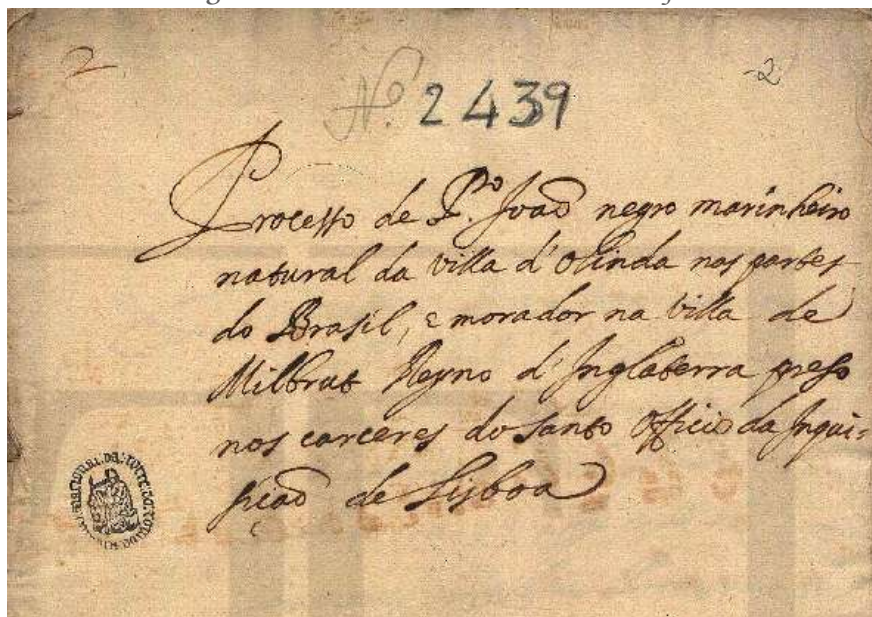 2
2
Nº. 2439
Processo de Pº. João negro marinheiro
natural da villa d'Olinda nas partes
do Brasil, e morador na villa de
Milbrut Reyno d'Inglaterra preso
nos carceres do Santo Officio da Inqui=
sição de Lisboa